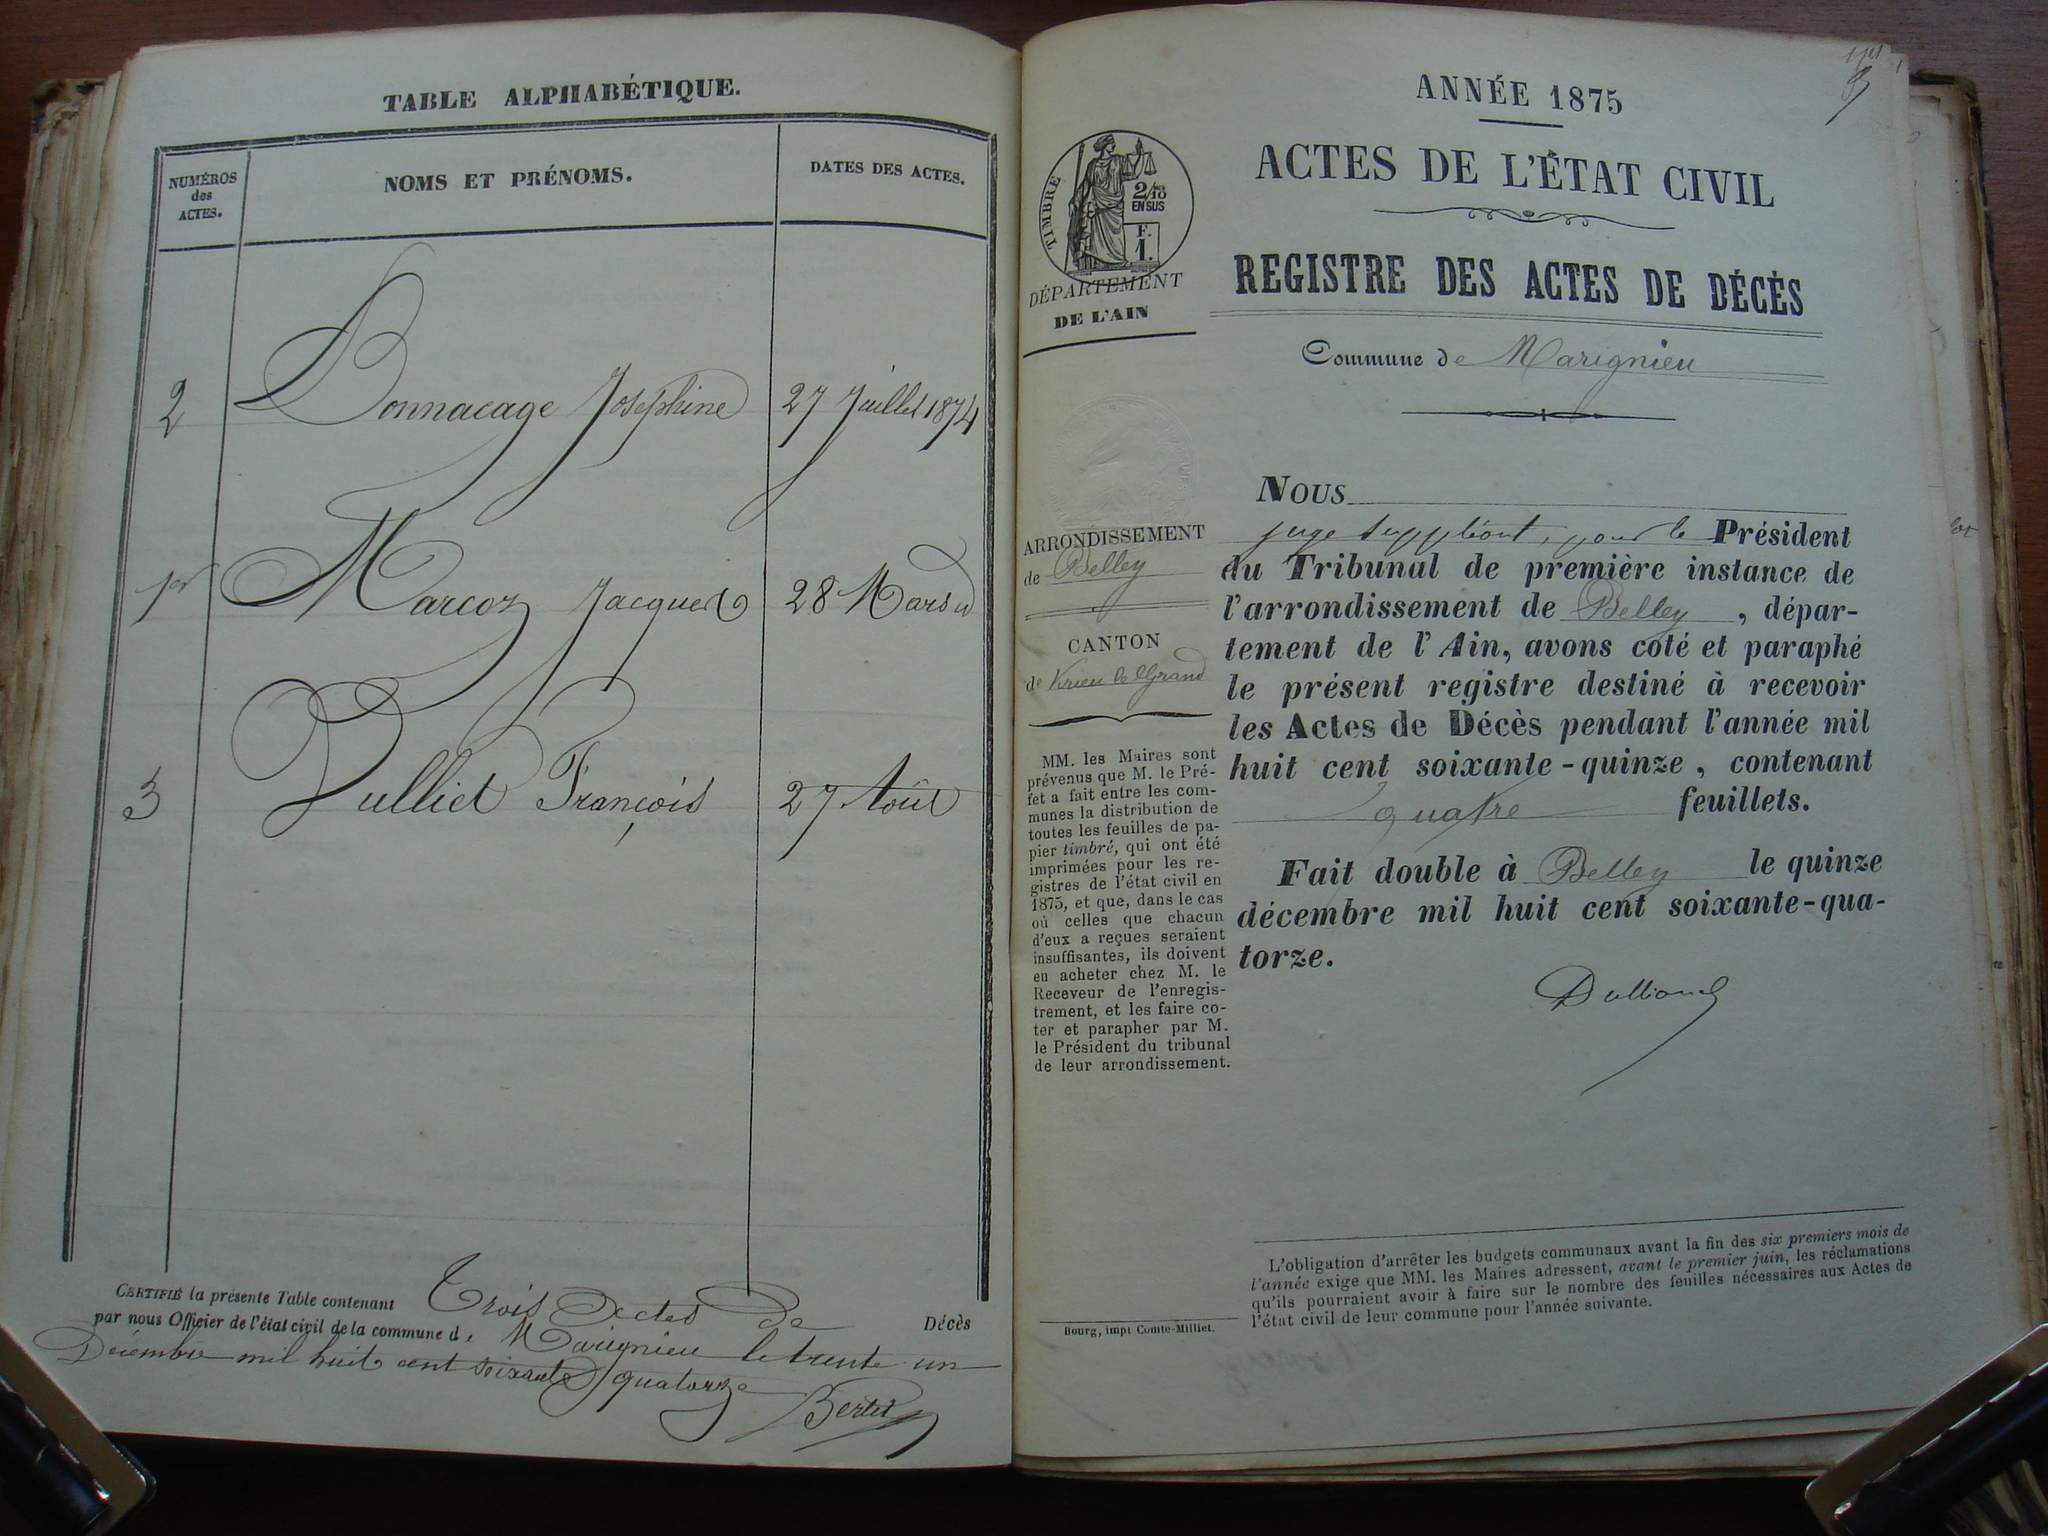 TABLE ALPHABÉTIQUE.
NUMÉROS des ACTES.
NOMS ET PRÉNOMS.
DATES DES ACTES.
2 Bonnacage Josephine 27 Juillet 1874
1er Marcoz Jacques 28 Mars id
3 Vulliet François 27 Août
CERTIFIÉ la présente Table contenant Trois Actes de Décès
par nous Officier de l'état civil de la commune d. Marignieu le trente un
Décembre mil huit cent soixante quatorze
Bertet
ANNÉE 1875
ACTES DE L'ÉTAT CIVIL
REGISTRE DES ACTES DE DÉCÈS
Commune de Marignieu
TIMBRE
2/10 EN SUS
F. 1.
DÉPARTEMENT
DE L'AIN
ARRONDISSEMENT
de Belley
CANTON
de Virieu le Grand
MM. les Maires sont
prévenus que M. le Pré-
fet a fait entre les com-
munes la distribution de
toutes les feuilles de pa-
pier timbré, qui ont été
imprimées pour les re-
gistres de l'état civil en
1875, et que, dans le cas
où celles que chacun
d'eux a reçues seraient
insuffisantes, ils doivent
en acheter chez M. le
Receveur de l'enregis-
trement, et les faire co-
ter et parapher par M.
le Président du tribunal
de leur arrondissement.
NOUS
juge suppléant, pour le Président
du Tribunal de première instance de
l'arrondissement de Belley, dépar-
tement de l'Ain, avons coté et paraphé
le présent registre destiné à recevoir
les Actes de Décès pendant l'année mil
huit cent soixante-quinze, contenant
quatre feuillets.
Fait double à Belley le quinze
décembre mil huit cent soixante-qua-
torze.
L'obligation d'arrêter les budgets communaux avant la fin des six premiers mois de
l'année exige que MM. les Maires adressent, avant le premier juin, les réclamations
qu'ils pourraient avoir à faire sur le nombre des feuilles nécessaires aux Actes de
l'état civil de leur commune pour l'année suivante.
Bourg, impr Comte-Milliet.